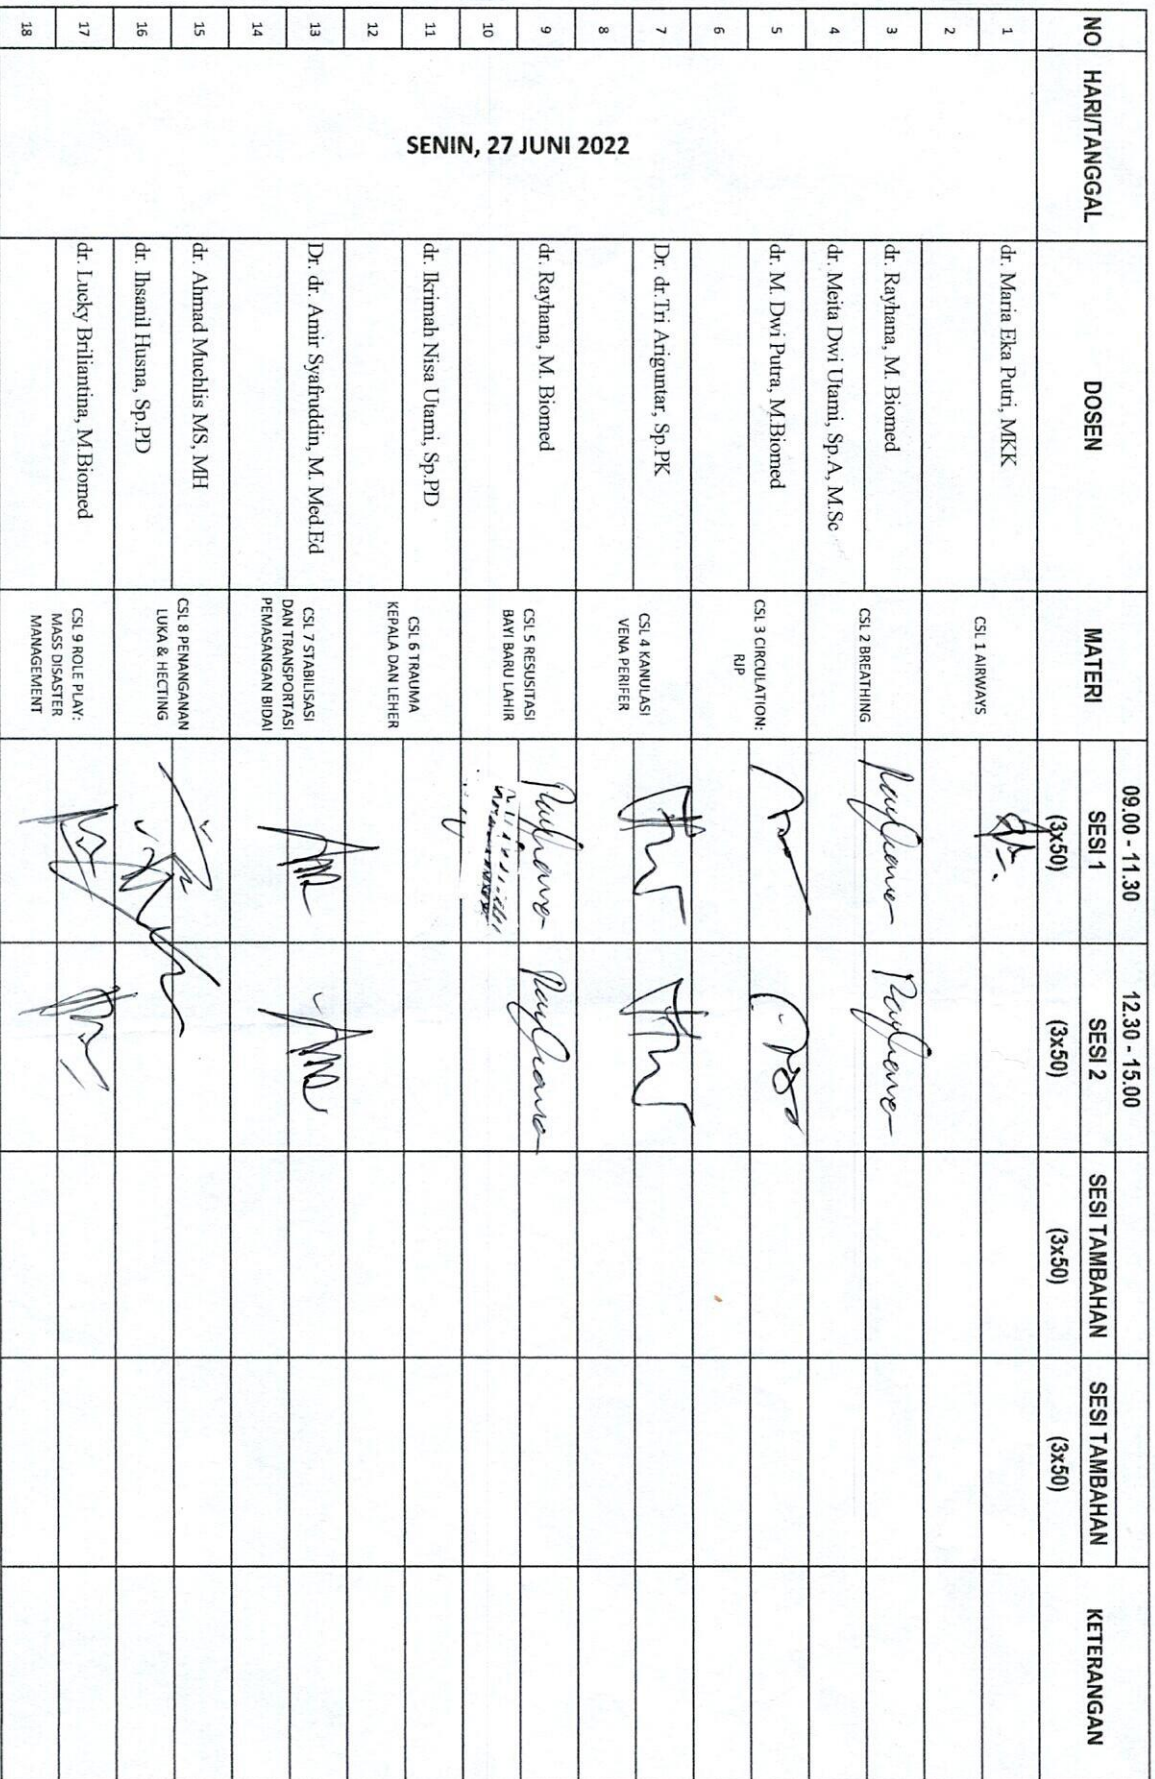 09.00 - 11.30 12.30 - 15.00
NO HARI/TANGGAL DOSEN MATERI SESI 1 SESI 2 SESI TAMBAHAN SESI TAMBAHAN KETERANGAN
(3x50) (3x50) (3x50) (3x50)
SENIN, 27 JUNI 2022
1 dr. Maria Eka Putri, MKK
CSL 1 AIRWAYS
2
3 dr. Rayhana, M. Biomed
CSL 2 BREATHING
4 dr. Meita Dwi Utami, Sp.A, M.Sc
5 dr. M. Dwi Putra, M.Biomed
CSL 3 CIRCULATION:
RJP
6
7 Dr. dr. Tri Ariguntar, Sp.PK
CSL 4 KANULASI
VENA PERIFER
8
9 dr. Rayhana, M. Biomed
CSL 5 RESUSITASI
BAYI BARU LAHIR
10
11 dr. Ikrimah Nisa Utami, Sp.PD
CSL 6 TRAUMA
KEPALA DAN LEHER
12
13 Dr. dr. Amir Syafruddin, M. Med.Ed
CSL 7 STABILISASI
DAN TRANSPORTASI
PEMASANGAN BIDAI
14
15 dr. Ahmad Muchlis MS, MH
CSL 8 PENANGANAN
LUKA & HECTING
16 dr. Ihsanil Husna, Sp.PD
17 dr. Lucky Briliantina, M.Biomed
CSL 9 ROLE PLAY:
MASS DISASTER
MANAGEMENT
18